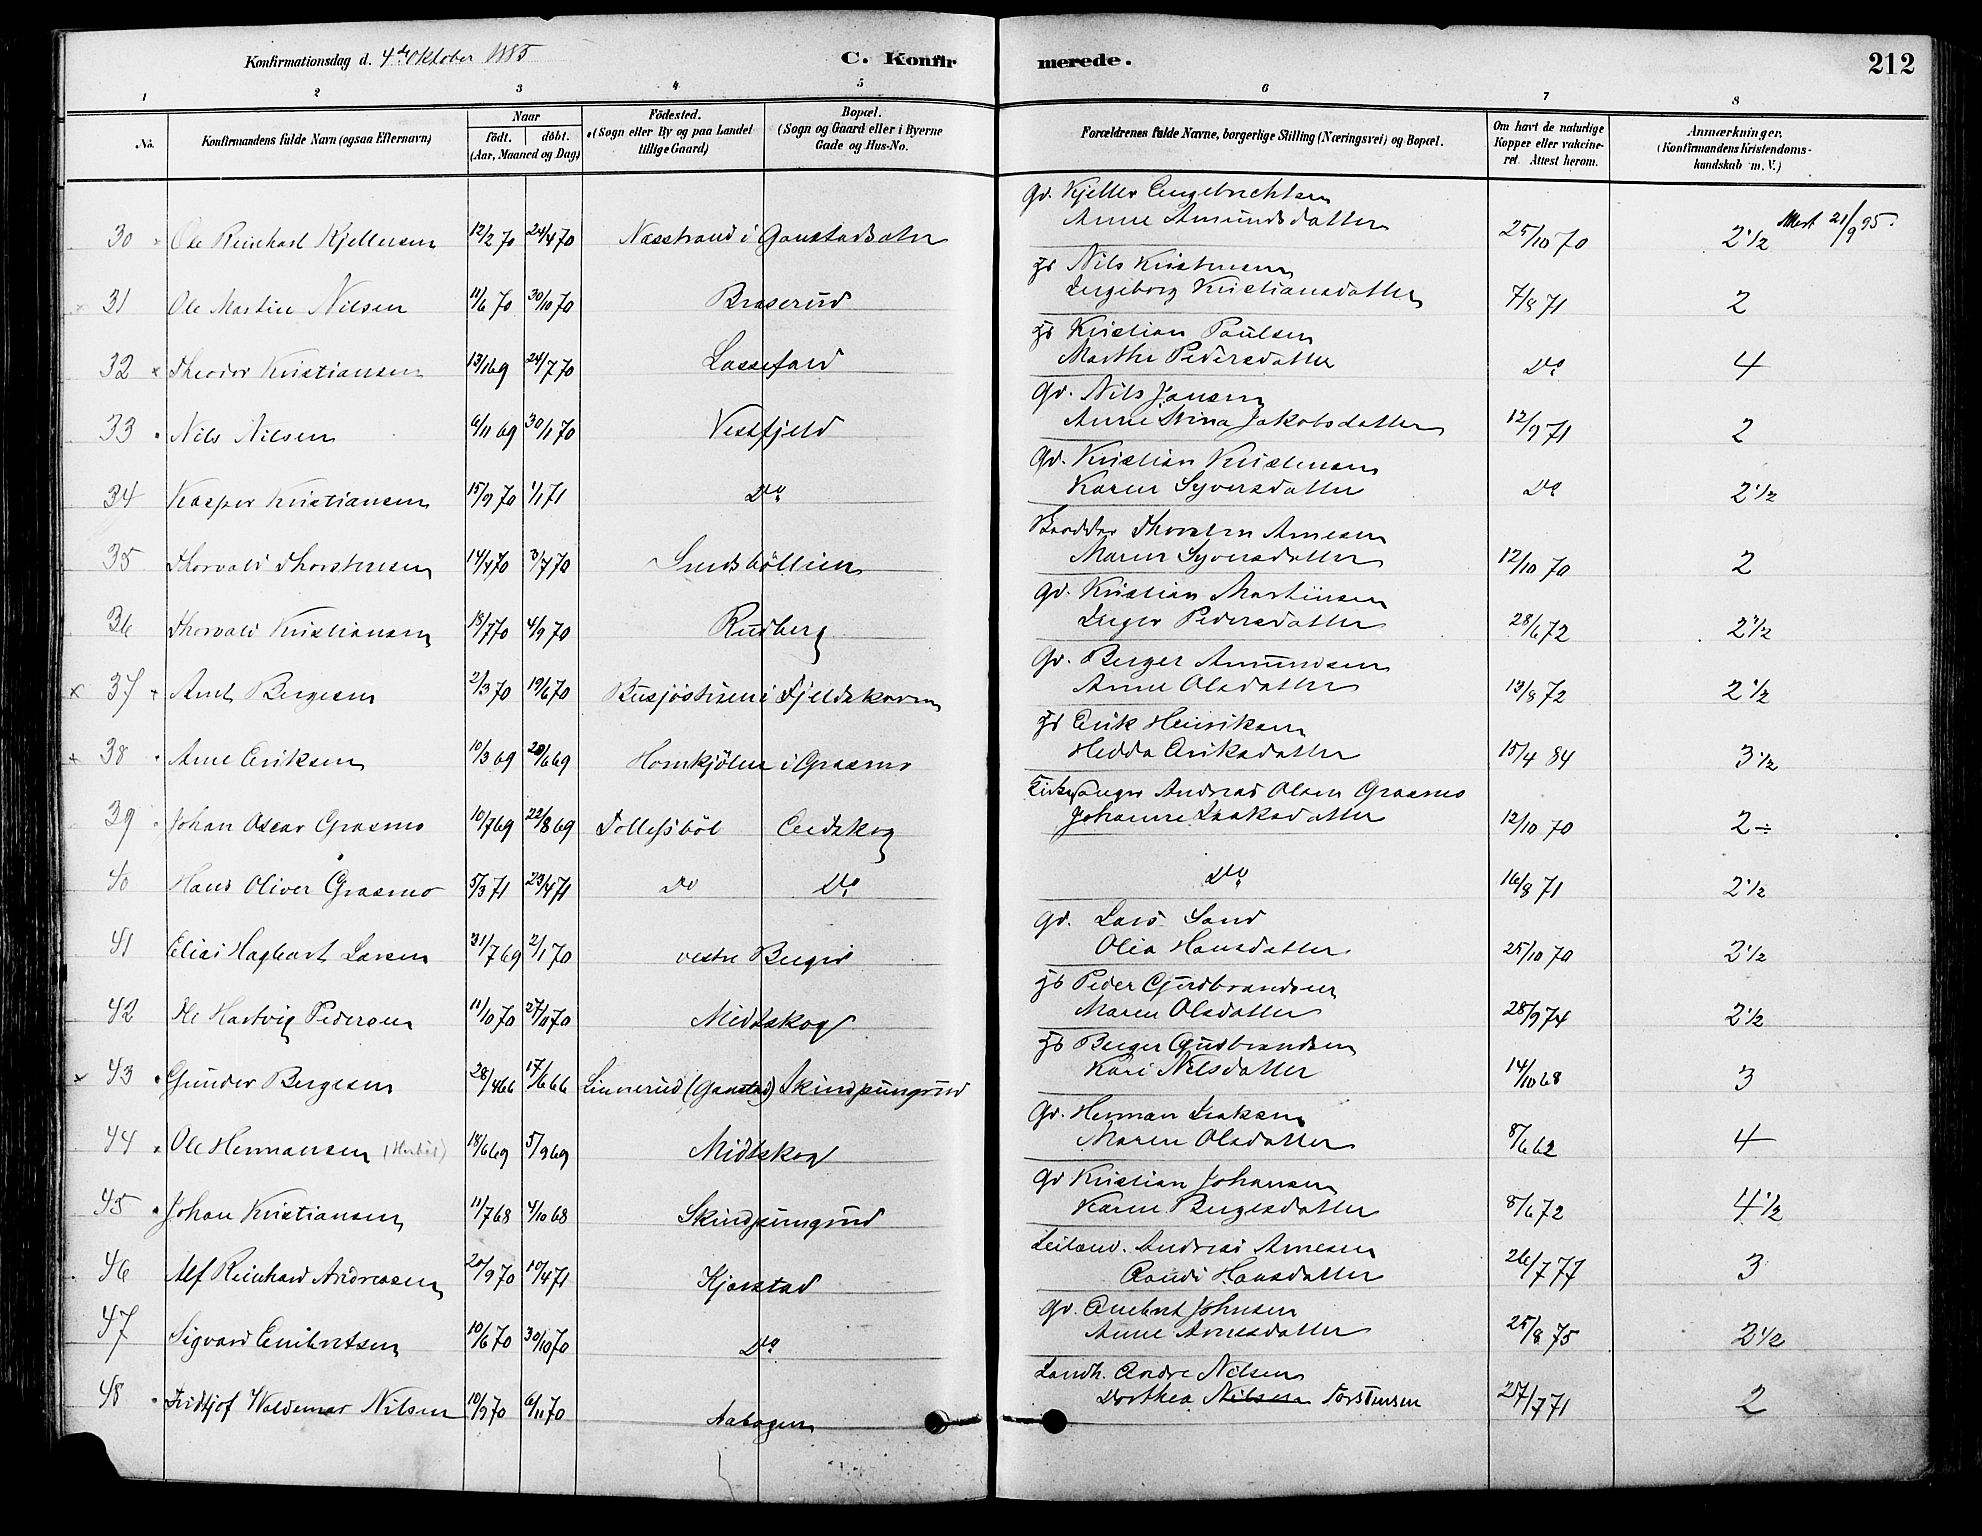 Konfirmationsdag d. 4de Oktober 1885
C. Konfirmerede.
212
1 2 3 4 5 6 7 8
No. Konfirmandens fulde Navn (ogsaa Efternavn) Naar født. døbt. (Aar, Maaned og Dag) Fødested. (Sogn eller By og paa Landet tillige Gaard) Bopæl. (Sogn og Gaard eller i Byerne Gade og Hus-No. Forældrenes fulde Navne, borgerlige Stilling (Næringsvei) og Bopæl. Om havt de naturlige Kopper eller vakcineret. Attest herom. Anmærkninger. (Konfirmandens Kristendomskundskab m. V.)
Gd. Kjeller Engebrichtsen
30 Ole Reinhart Kjellersen 12/2 70 24/4 70 Næsstrand i Gaustadsæter Anne Amundsdatter 25/10 70 2 1/2 Attest 21/9 95.
Ip Nils Kristensen
31 Ole Martin Nilsen 11/6 70 30/10 70 Braserud Ingeborg Kristiansdatter 7/8 71 2
Ip Kristian Paulsen
32 Theodor Kristiansen 13/1 69 24/7 70 Lassefard Marthe Pedersdatter Do 4
Gd. Nils Jansen
33 Nils Nilsen 6/11 69 30/1 70 Vestfjeld Anne Stina Jakobsdatter 12/9 71 2
Gd. Kristian Kristensen
34 Kasper Kristiansen 15/9 70 1/1 71 Do Karen Syversdatter Do 2 1/2
Thorsten Arnesen
35 Thorvald Thorstensen 14/4 70 3/7 70 Smedsböllien Maren Syversdatter 12/10 70 2
Gd. Kristian Martinsen
36 Thorvald Kristiansen 18/7 70 4/9 70 Rudberg Inger Pedersdatter 28/6 72 2 1/2
Gd. Berger Amundsen
37 Arnt Bergesen 2/3 70 19/6 70 Busjöstuen i Fjeldskoven Anne Olsdatter 13/8 72 2 1/2
Ip Erik Henriksen
38 Arne Eriksen 10/3 69 20/6 69 Homkjölen i Grasmo Hedda Eriksdatter 15/4 84 3 1/2
Kirkesanger Andreas Olsen Grasmo
39 Johan Oscar Grasmo 10/7 69 22/8 69 Tollefsböl Eidskog Johanne Isaksdatter 12/10 70 2 ÷
40 Hans Oliver Grasmo 5/3 71 23/4 71 Do Do Do 16/8 71 2 1/2
Gd. Lars Sand
41 Elias Hagbart Larsen 31/7 69 2/1 70 vestre Berger Olia Hansdatter 25/10 70 2 1/2
Ip Peder Gudbrandsen
42 Ole Hartvig Pedersen 11/10 70 27/10 70 Midtskog Maren Olsdatter 28/9 74 2 1/2
Ip Berger Gudbrandsen
43 Gunder Bergesen 28/4 66 17/6 66 Linnerud (Gaustad) Skindpungrud Kari Nilsdatter 14/10 68 3
Gd. Herman Isaksen
44 Ole Hermansen 18/6 69 5/9 69 Midtskog Maren Olsdatter 8/6 62 4
Gd Kristian Johansen
45 Johan Kristiansen 11/7 68 4/10 68 Skindpungrud Karen Bergesdatter 8/6 72 4 1/2
Leilænd. Andreas Arnesen
46 Alf Reinhard Andreasen 20/9 70 10/4 71 Kjerstad Randi Hansdatter 26/7 77 3
Gd. Embret Johnsen
47 Sigvard Embretsen 10/6 70 30/10 70 Do Anne Arnesdatter 25/8 75 2 1/2
Landh. Andre Nilsen
48 Fridtjof Waldemar Nilsen 10/9 70 6/11 70 Aabogen Dorthea Nilsen Torstensen 27/7 71 2